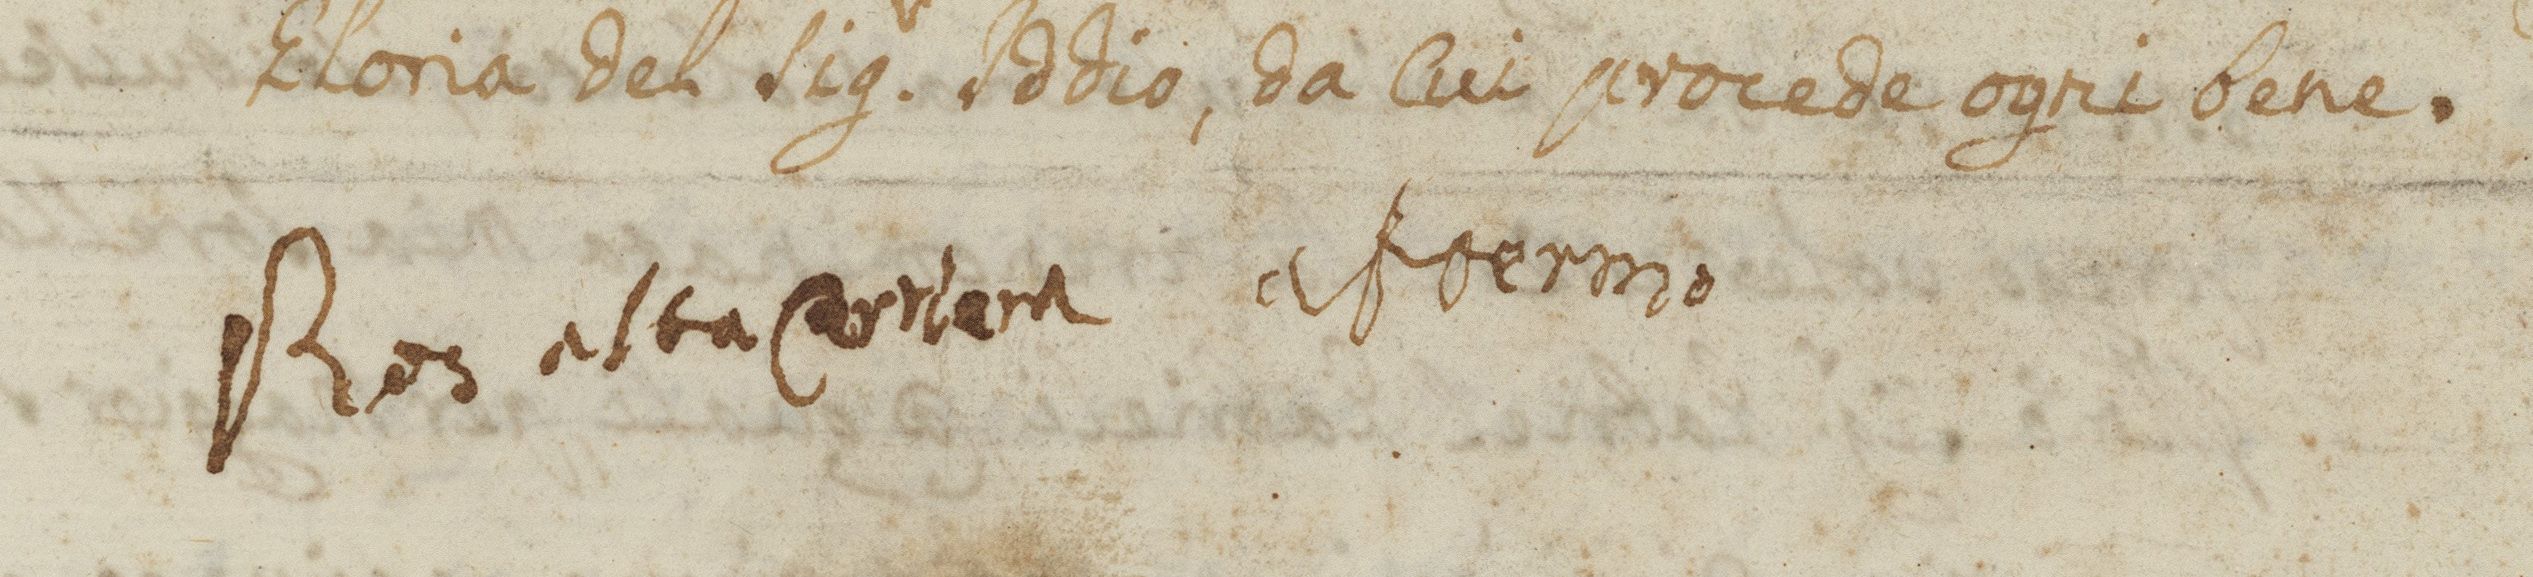 Gloria del Sig.r Iddio, da Cui procede ogni bene.
Ros alba Carriera affermo